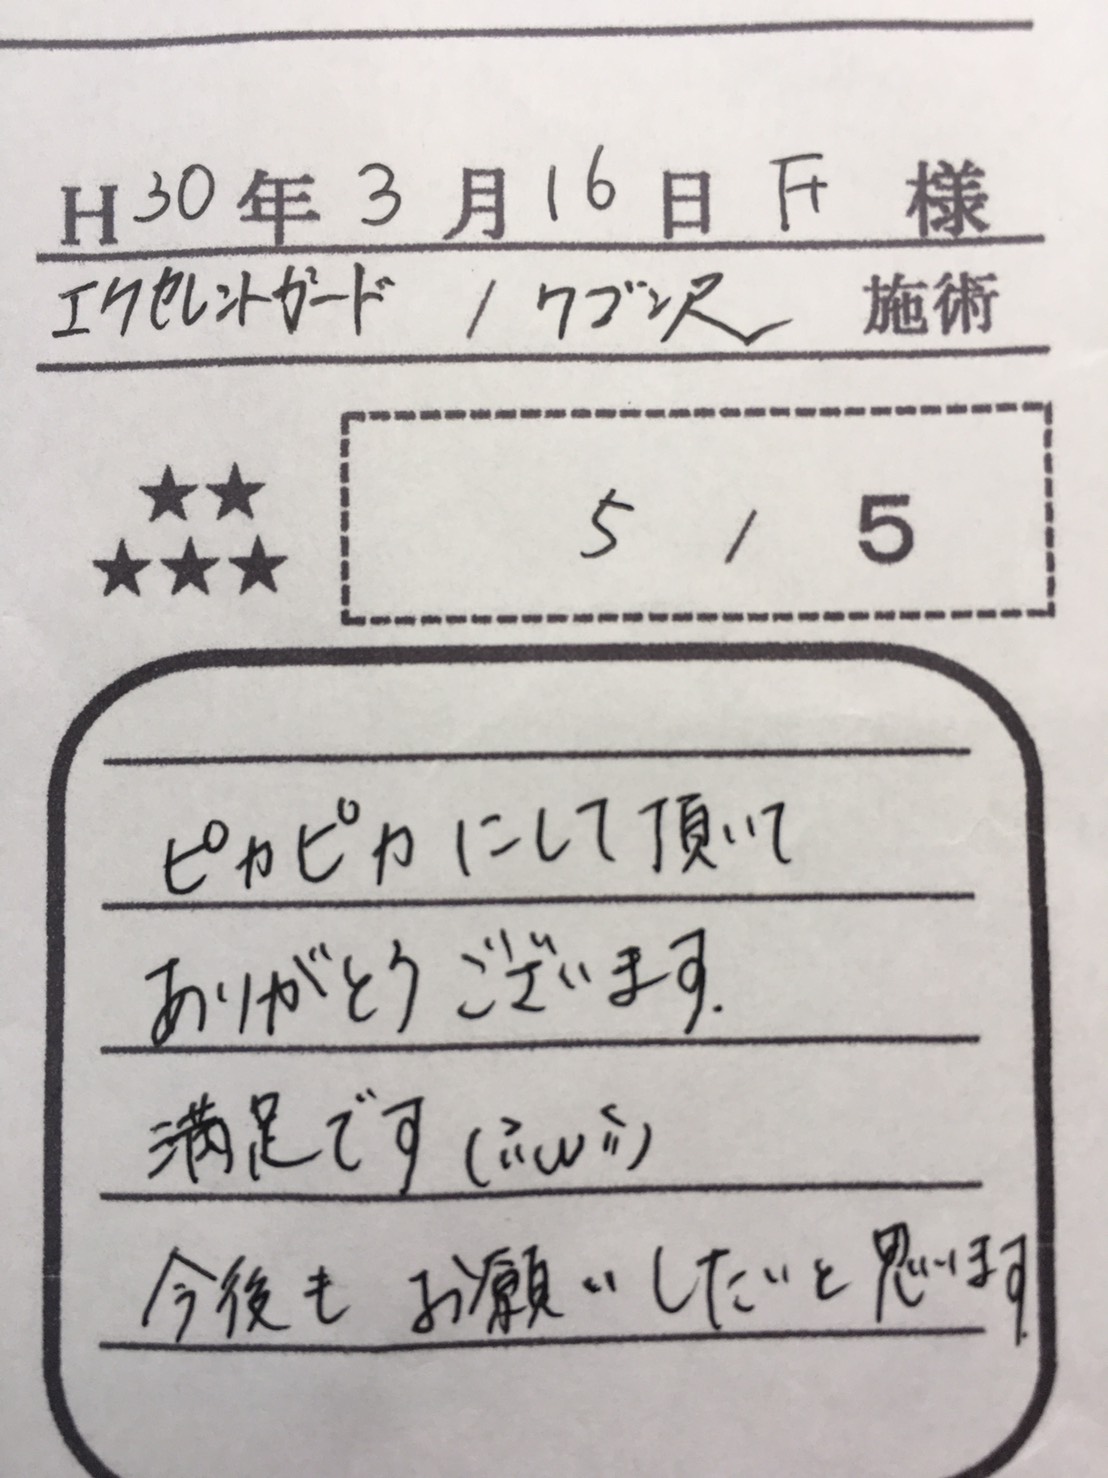 H30年3月16日 F+ 様
エクセレントガード / ワゴンR 施術
★★
★★★
5 / 5
ピカピカにして頂いて
ありがとうございます.
満足です(ﾐﾐωﾐﾐ)
今後も お願いしたいと思います.